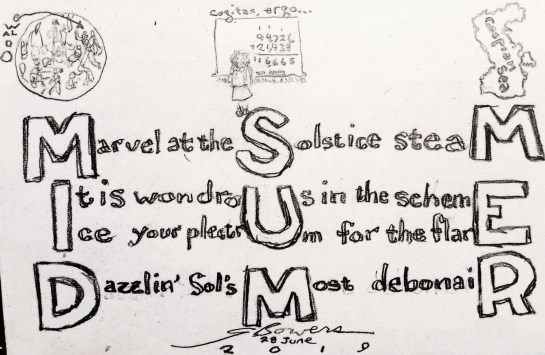 WALDO
Cogitas, ergo...
94726
21939
116665
Caspian Sea
Marvel at the Solstice steaM
It is wondroUs in the schemE
Ice your plectrUm for the flarE
Dazzlin' Sol's Most debonaiR
GBowers
28 June
2019